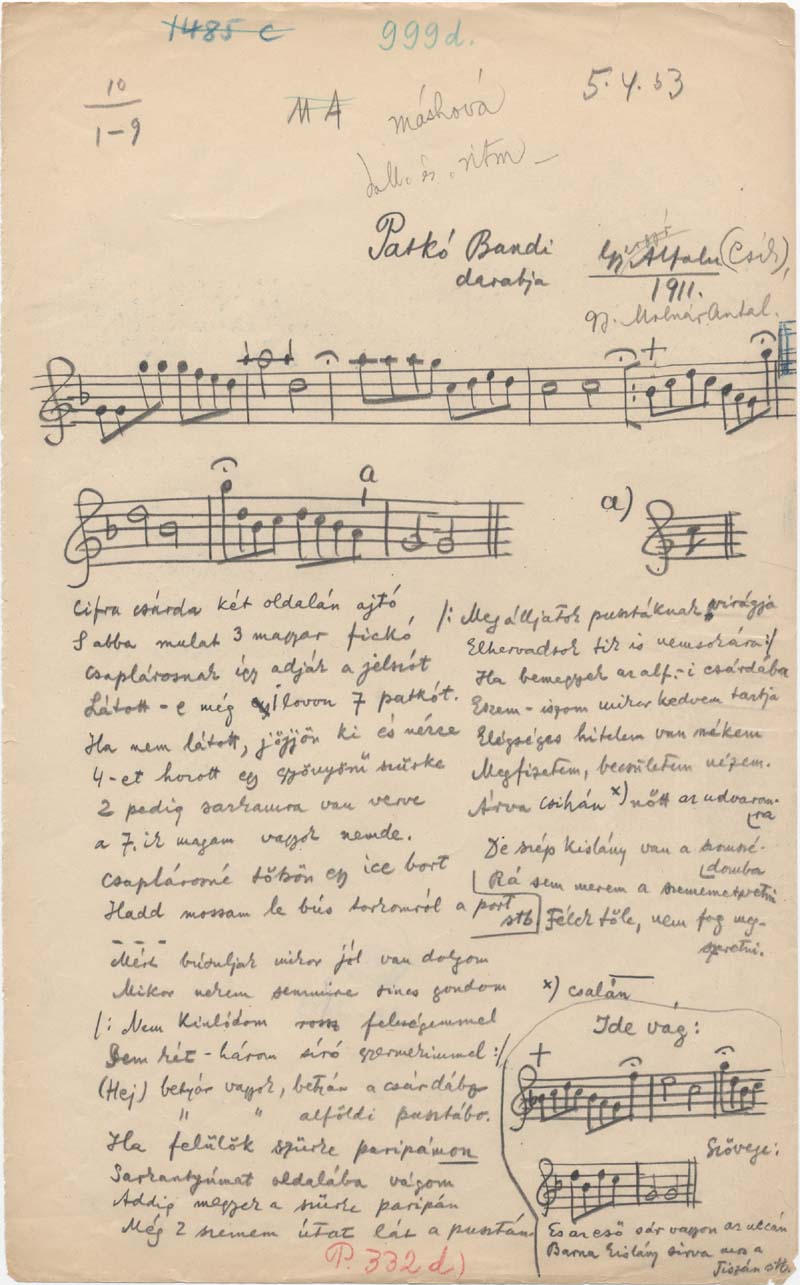 1485 c
999d.
10
1-9
MA
máshová
5.4.53
dall. és ritm
Patkó Bandi
darabja
Alfalu (Csík),
1911.
gy. Molnár Antal.
a
a)
Cifra csárda két oldalán ajtó
S abba mulat 3 magyar fickó
Csaplárosnak így adják a jelszót
Látott-e még lovon 7 patkót.
Ha nem látott, jöjjön ki és nézze
4-et hozott egy gyönyörű szürke
2 pedig sarkamra van verve
a 7.ik magam vagyok nemde.
Csaplárosné töksön egy icce bort
Hadd mossam le bús torkomról a port
stb
Mért búsuljak mikor jól van dolgom
Mikor nekem semmire sincs gondom
/: Nem kínlódom rossz feleségemmel
Sem két-három síró gyermekimmel :/
(Hej) betyár vagyok, betyár a csárdába
" " alföldi pusztába.
Ha felülök szürke paripámon
Sarkantyúmat oldalába vágom
Addig megyek a szürke paripán
Még 2 szemem útat lát a pusztán
/: Megálljatok pusztáknak virágja
Elhervadsok tik is nemsokára :/
Ha bemegyek az alf.-i csárdába
Eszem-iszom mikor kedvem tartja
Elégséges hitelem van nékem
Megfizetem, becsületem nézem.
Árva csihán x) nőtt az udvarom-
ra
De szép kislány van a szomszé-
domba
Rá sem merem a szememet vetni
Félek tőle, nem fog meg-
szeretni.
x) csalán
Ide vág:
Szövege:
És az eső sár vagyon az uccán
Barna kislány sírva mos a
Tiszán stb.
P. 332d)